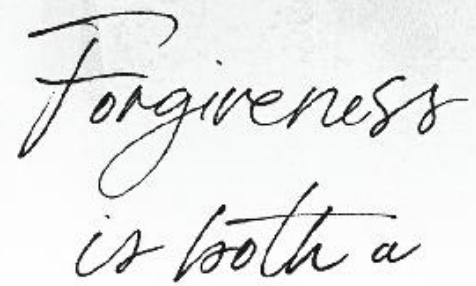 Forgiveness
is both a